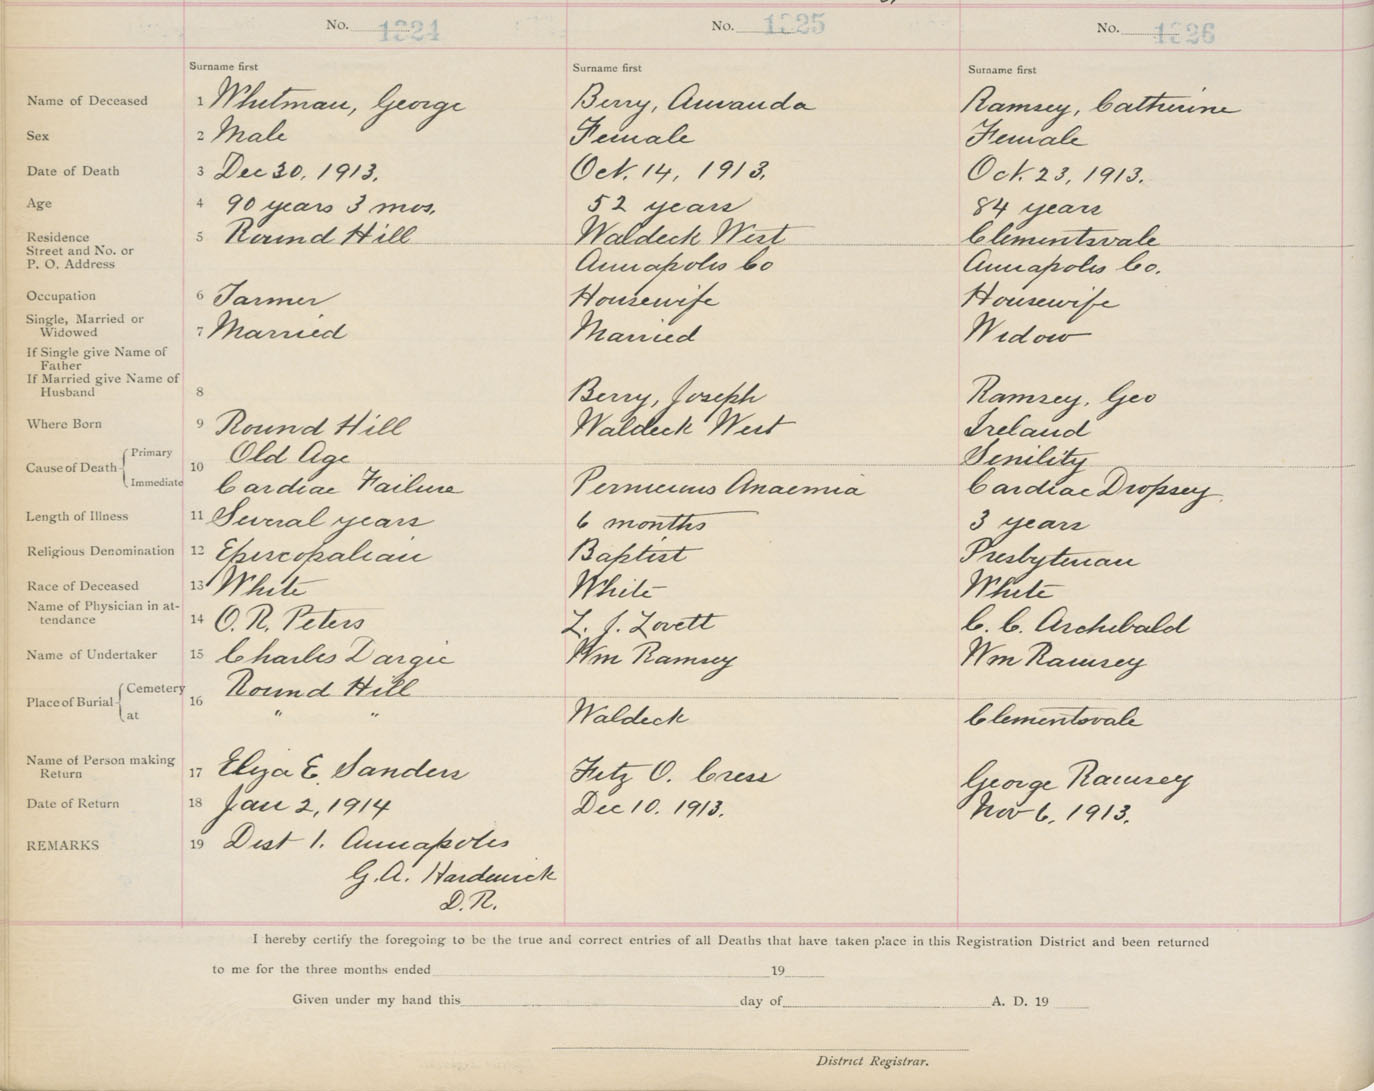 No. 1324 No. 1325 No. 1326
Surname first Surname first Surname first
Name of Deceased 1 Whitman, George Berry, Amanda Ramsey, Catherine
Sex 2 Male Female Female
Date of Death 3 Dec 30, 1913. Oct. 14, 1913. Oct. 23, 1913.
Age 4 90 years 3 mos. 52 years 84 years
Residence 5 Round Hill Waldeck West Clementsvale
Street and No. or
P. O. Address Annapolis Co Annapolis Co.
Occupation 6 Farmer Housewife Housewife
Single, Married or
Widowed 7 Married Married Widow
If Single give Name of
Father
If Married give Name of
Husband 8 Berry, Joseph Ramsey, Geo
Where Born 9 Round Hill Waldeck West Ireland
Cause of Death Primary 10 Old Age Senility
Immediate Cardiac Failure Pernicious Anaemia Cardiac Dropsey
Length of Illness 11 Several years 6 months 3 years
Religious Denomination 12 Episcopalian Baptist Presbyterian
Race of Deceased 13 White White White
Name of Physician in at-
tendance 14 O. R. Peters L. J. Lovett C. C. Archibald
Name of Undertaker 15 Charles Dargie Wm Ramsey Wm Ramsey
Place of Burial Cemetery 16 Round Hill
at " " Waldeck Clementsvale
Name of Person making
Return 17 Eliza E. Sanders Fitz O. Cress George Ramsey
Date of Return 18 Jan 2, 1914 Dec 10. 1913. Nov 6, 1913.
REMARKS 19 Dist 1. Annapolis
G. A. Hardwick
D. R.
I hereby certify the foregoing to be the true and correct entries of all Deaths that have taken place in this Registration District and been returned
to me for the three months ended 19
Given under my hand this day of A. D. 19
District Registrar.